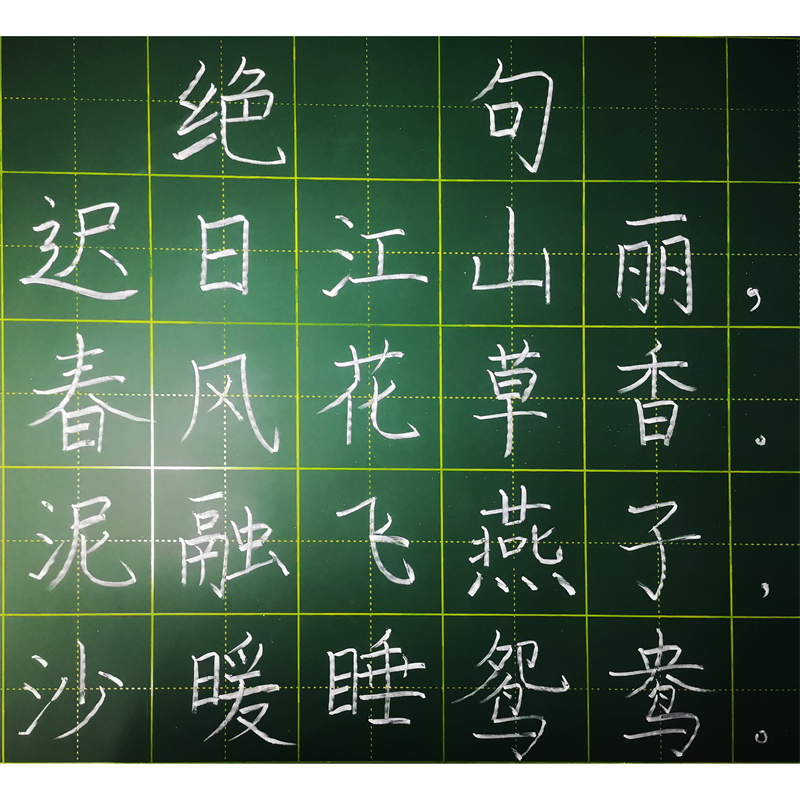 绝句
迟日江山丽，
春风花草香。
泥融飞燕子，
沙暖睡鸳鸯。